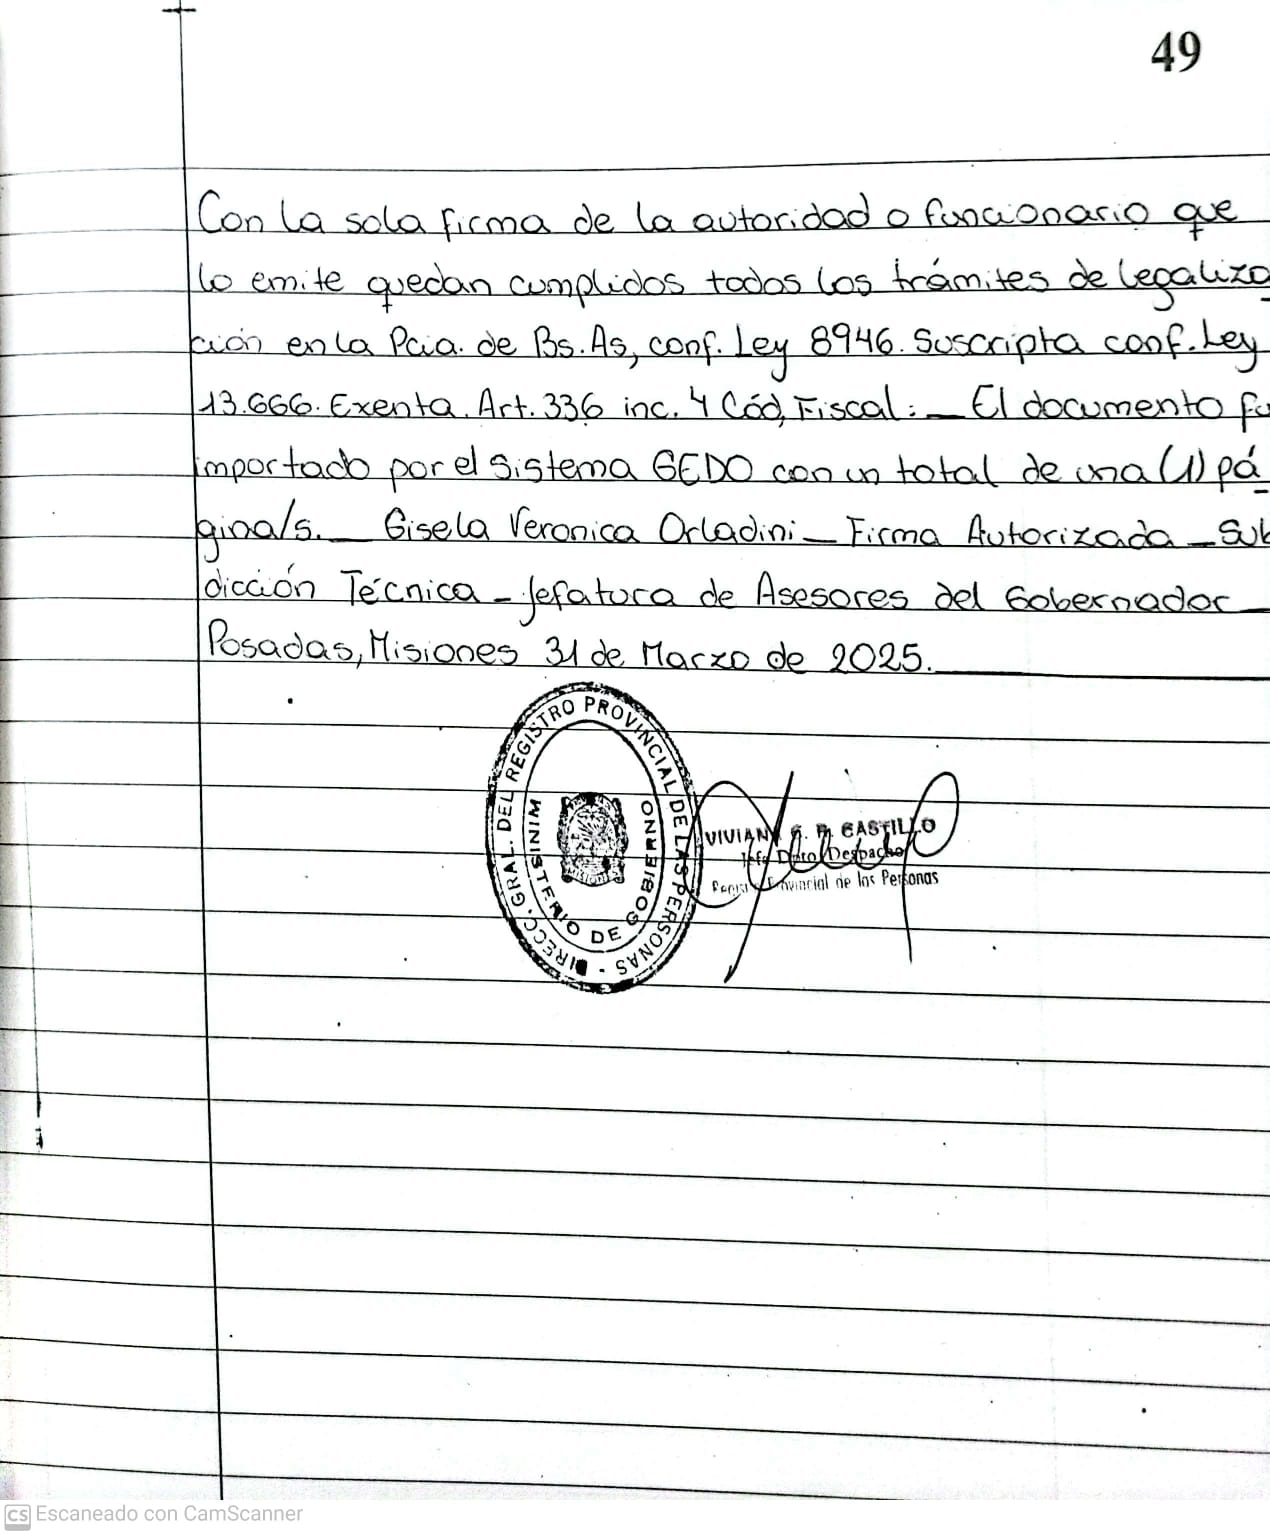 49
Con la sola firma de la autoridad o funcionario que
lo emite quedan cumplidos todos los trámites de legaliza
ción en la Pcia. de Bs. As, conf. Ley 8946. Suscripta conf. Ley
13.666. Exenta. Art. 336 inc. 4 Cód, Fiscal: _ El documento fu
importado por el Sistema GEDO con un total de una (1) pá
gina/s. _ Gisela Veronica Orladini _ Firma Autorizada _ Sub
dicción Técnica - Jefatura de Asesores del Gobernador
Posadas, Misiones 31 de Marzo de 2025.
DIRECC. GRAL. DEL REGISTRO PROVINCIAL DE LAS PERSONAS -
MINISTERIO DE GOBIERNO
CASTILLO
Despacho
Provincial de las Personas
CS Escaneado con CamScanner